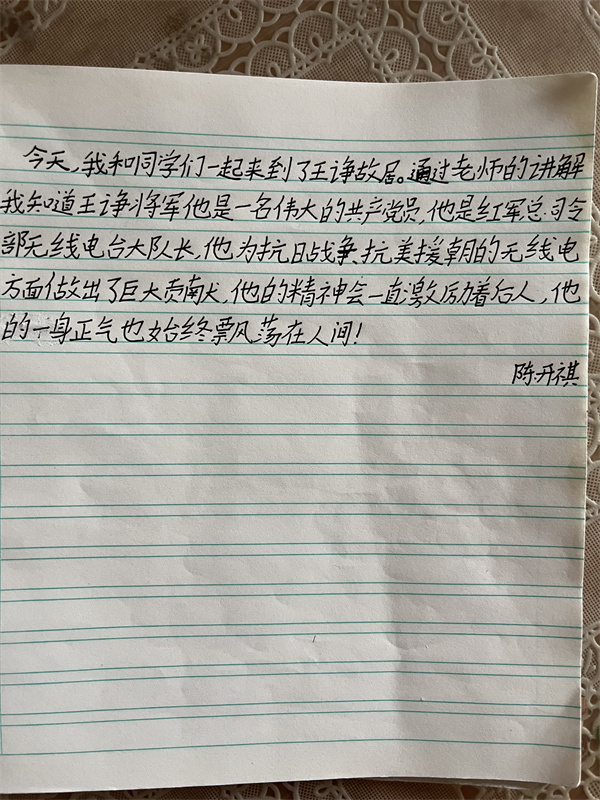 今天,我和同学们一起来到了王诤故居。通过老师的讲解
我知道王诤将军他是一名伟大的共产党员,他是红军总司令
部无线电台大队长,他为抗日战争、抗美援朝的无线电
方面做出了巨大贡献,他的精神会一直激励着后人,他
的一身正气也始终飘荡在人间!
陈丹祺